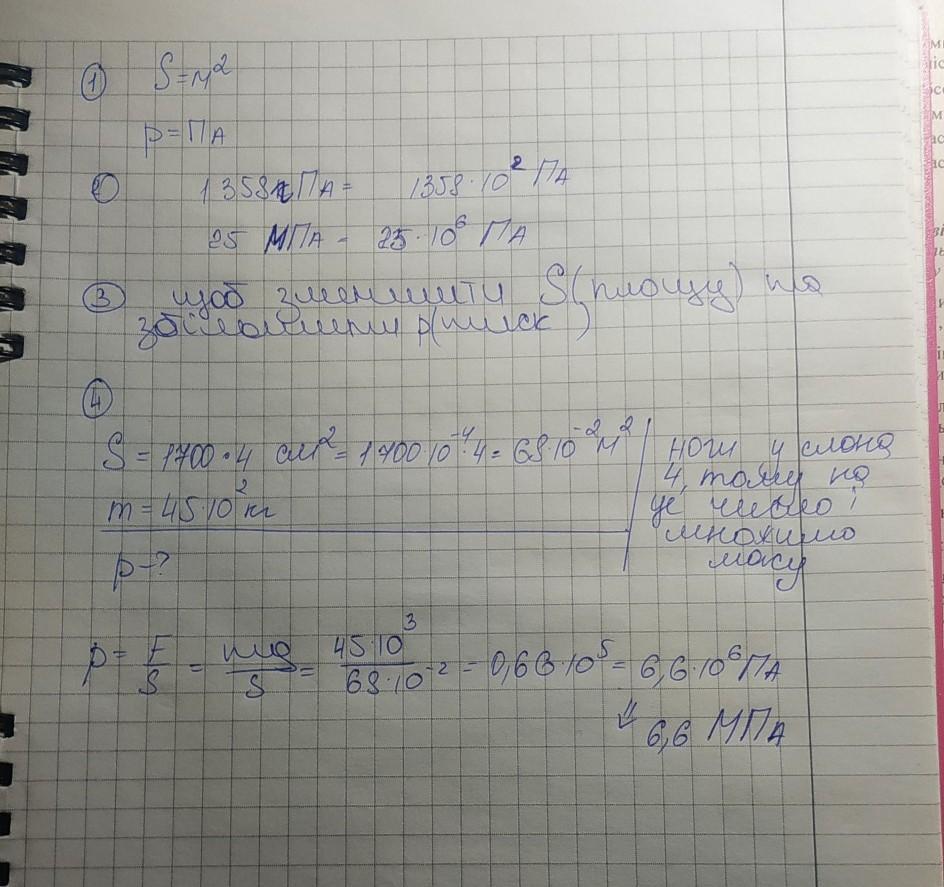 ① S=м²
p=ПА
② 1358гПА= 1358·10² ПА
25 МПА - 25·10⁶ ПА
③ щоб зменшити S(площу) та
збільшити p(тиск)
④
S = 1700·4 см² = 1700·10⁻⁴·4 = 68·10⁻² м²
m = 45·10² кг
p-?
ноги у слона
4, тому на
це число і
множимо
масу
p = F/S = mg/S = 45·10³/68·10⁻² = 0,66·10⁵ = 6,6·10⁶ ПА
⇓ 6,6 МПА